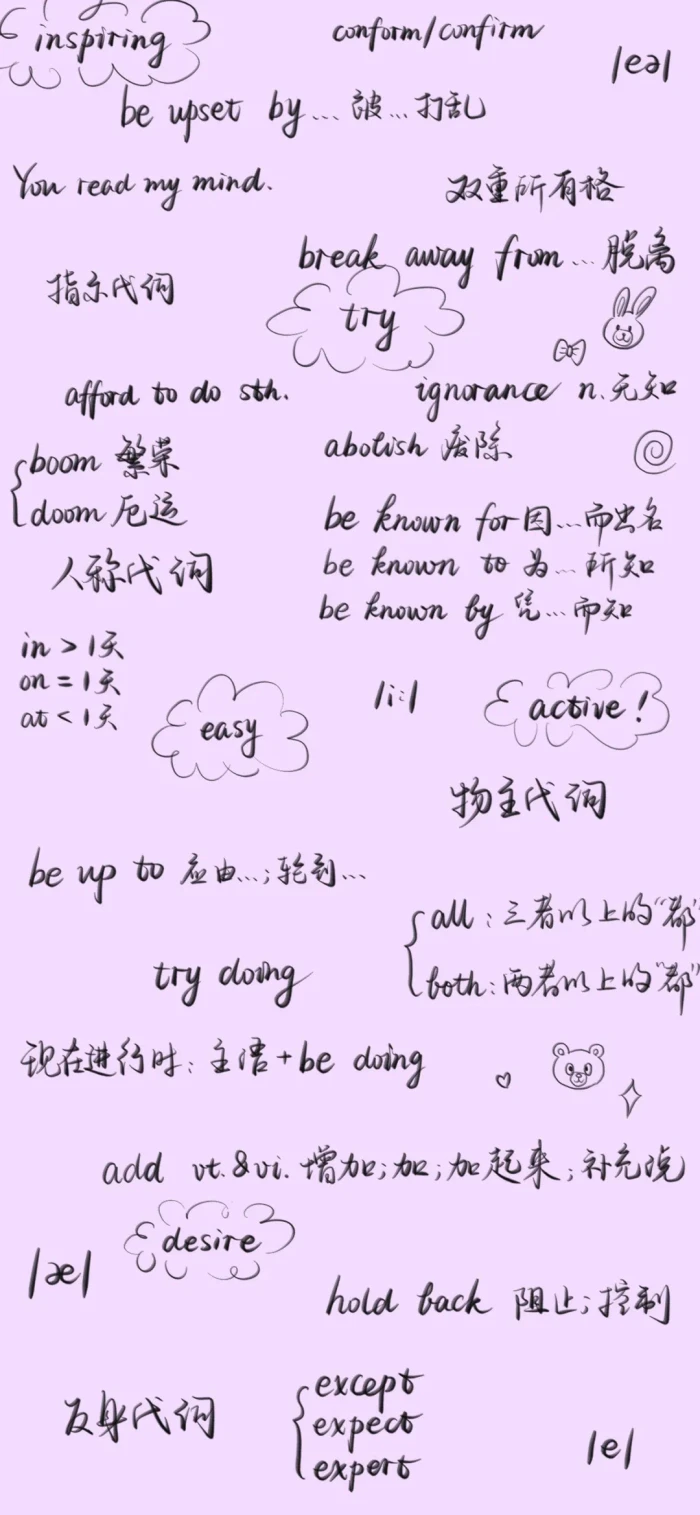 inspiring
conform/confirm
/eə/
be upset by... 被...打乱
You read my mind.
双重所有格
break away from... 脱离
指示代词
try
afford to do sth.
ignorance n.无知
boom 繁荣
abolish 废除
doom 厄运
be known for 因...而出名
be known to 为...所知
人称代词
be known by 凭...而知
in > 1天
on = 1天
at < 1天
easy
/i:/
active!
物主代词
be up to 应由...;轮到...
all:三者以上的"都"
both:两者以上的"都"
try doing
现在进行时:主语+be doing
add vt.&vi.增加;加;加起来;补充说
desire
/æ/
hold back 阻止;控制
反身代词
except
expect
export
/e/